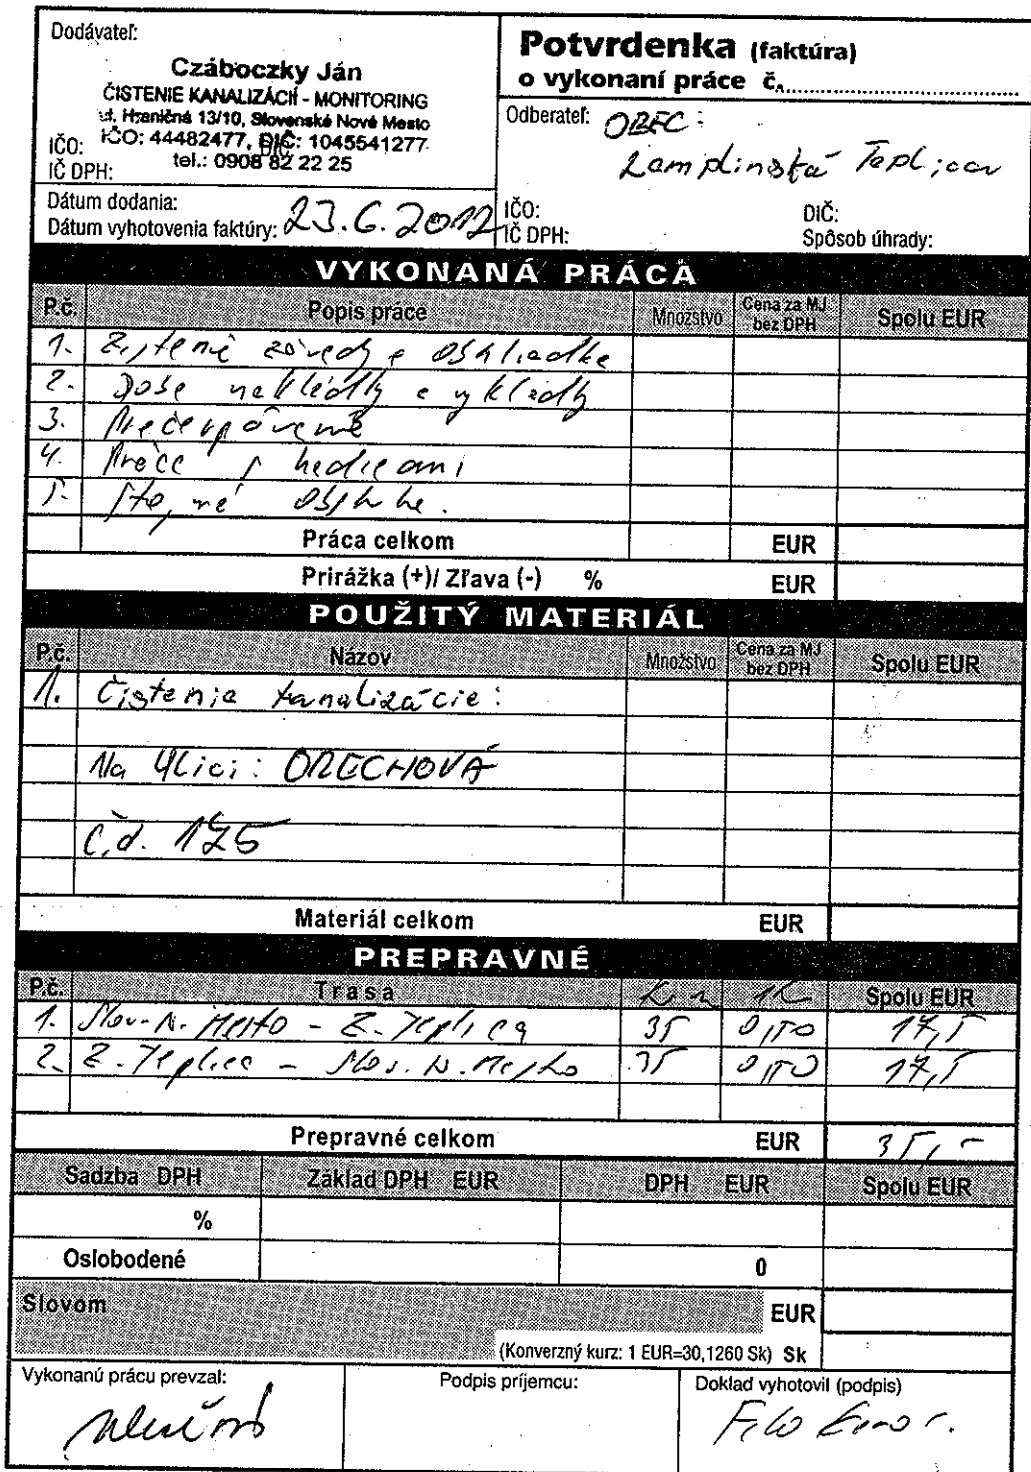 Dodávateľ:
Czáboczky Ján
ČISTENIE KANALIZÁCIÍ - MONITORING
ul. Hraničná 13/10, Slovenské Nové Mesto
IČO: IČO: 44482477, DIČ: 1045541277
IČ DPH: tel.: 0908 82 22 25
Dátum dodania:
Dátum vyhotovenia faktúry: 23.6.2012
Potvrdenka (faktúra)
o vykonaní práce č.
Odberateľ: OBEC:
Zemplínská Teplica
IČO: DIČ:
IČ DPH: Spôsob úhrady:
VYKONANÁ PRÁCA
P.č. Popis práce Množstvo Cena za MJ bez DPH Spolu EUR
1. Zistenie závady a obhliadka
2. nakládky a vykládky
3. Prečerpávanie
4. Práce s hadicami
5. Strojné obsluhe.
Práca celkom EUR
Prirážka (+)/ Zľava (-) % EUR
POUŽITÝ MATERIÁL
P.č. Názov Množstvo Cena za MJ bez DPH Spolu EUR
1. Čistenie kanalizácie:
Na Ulici: ORECHOVÁ
č.d. 175
Materiál celkom EUR
PREPRAVNÉ
P.č. Trasa Km Spolu EUR
1. Slov. N. Mesto - Z. Teplica 35 0,50 17,5
2. Z. Teplica - Slov. N. Mesto 35 0,50 17,5
Prepravné celkom EUR 35,-
Sadzba DPH Základ DPH EUR DPH EUR Spolu EUR
%
Oslobodené 0
Slovom EUR
(Konverzný kurz: 1 EUR=30,1260 Sk) Sk
Vykonanú prácu prevzal: Podpis príjemcu: Doklad vyhotovil (podpis)